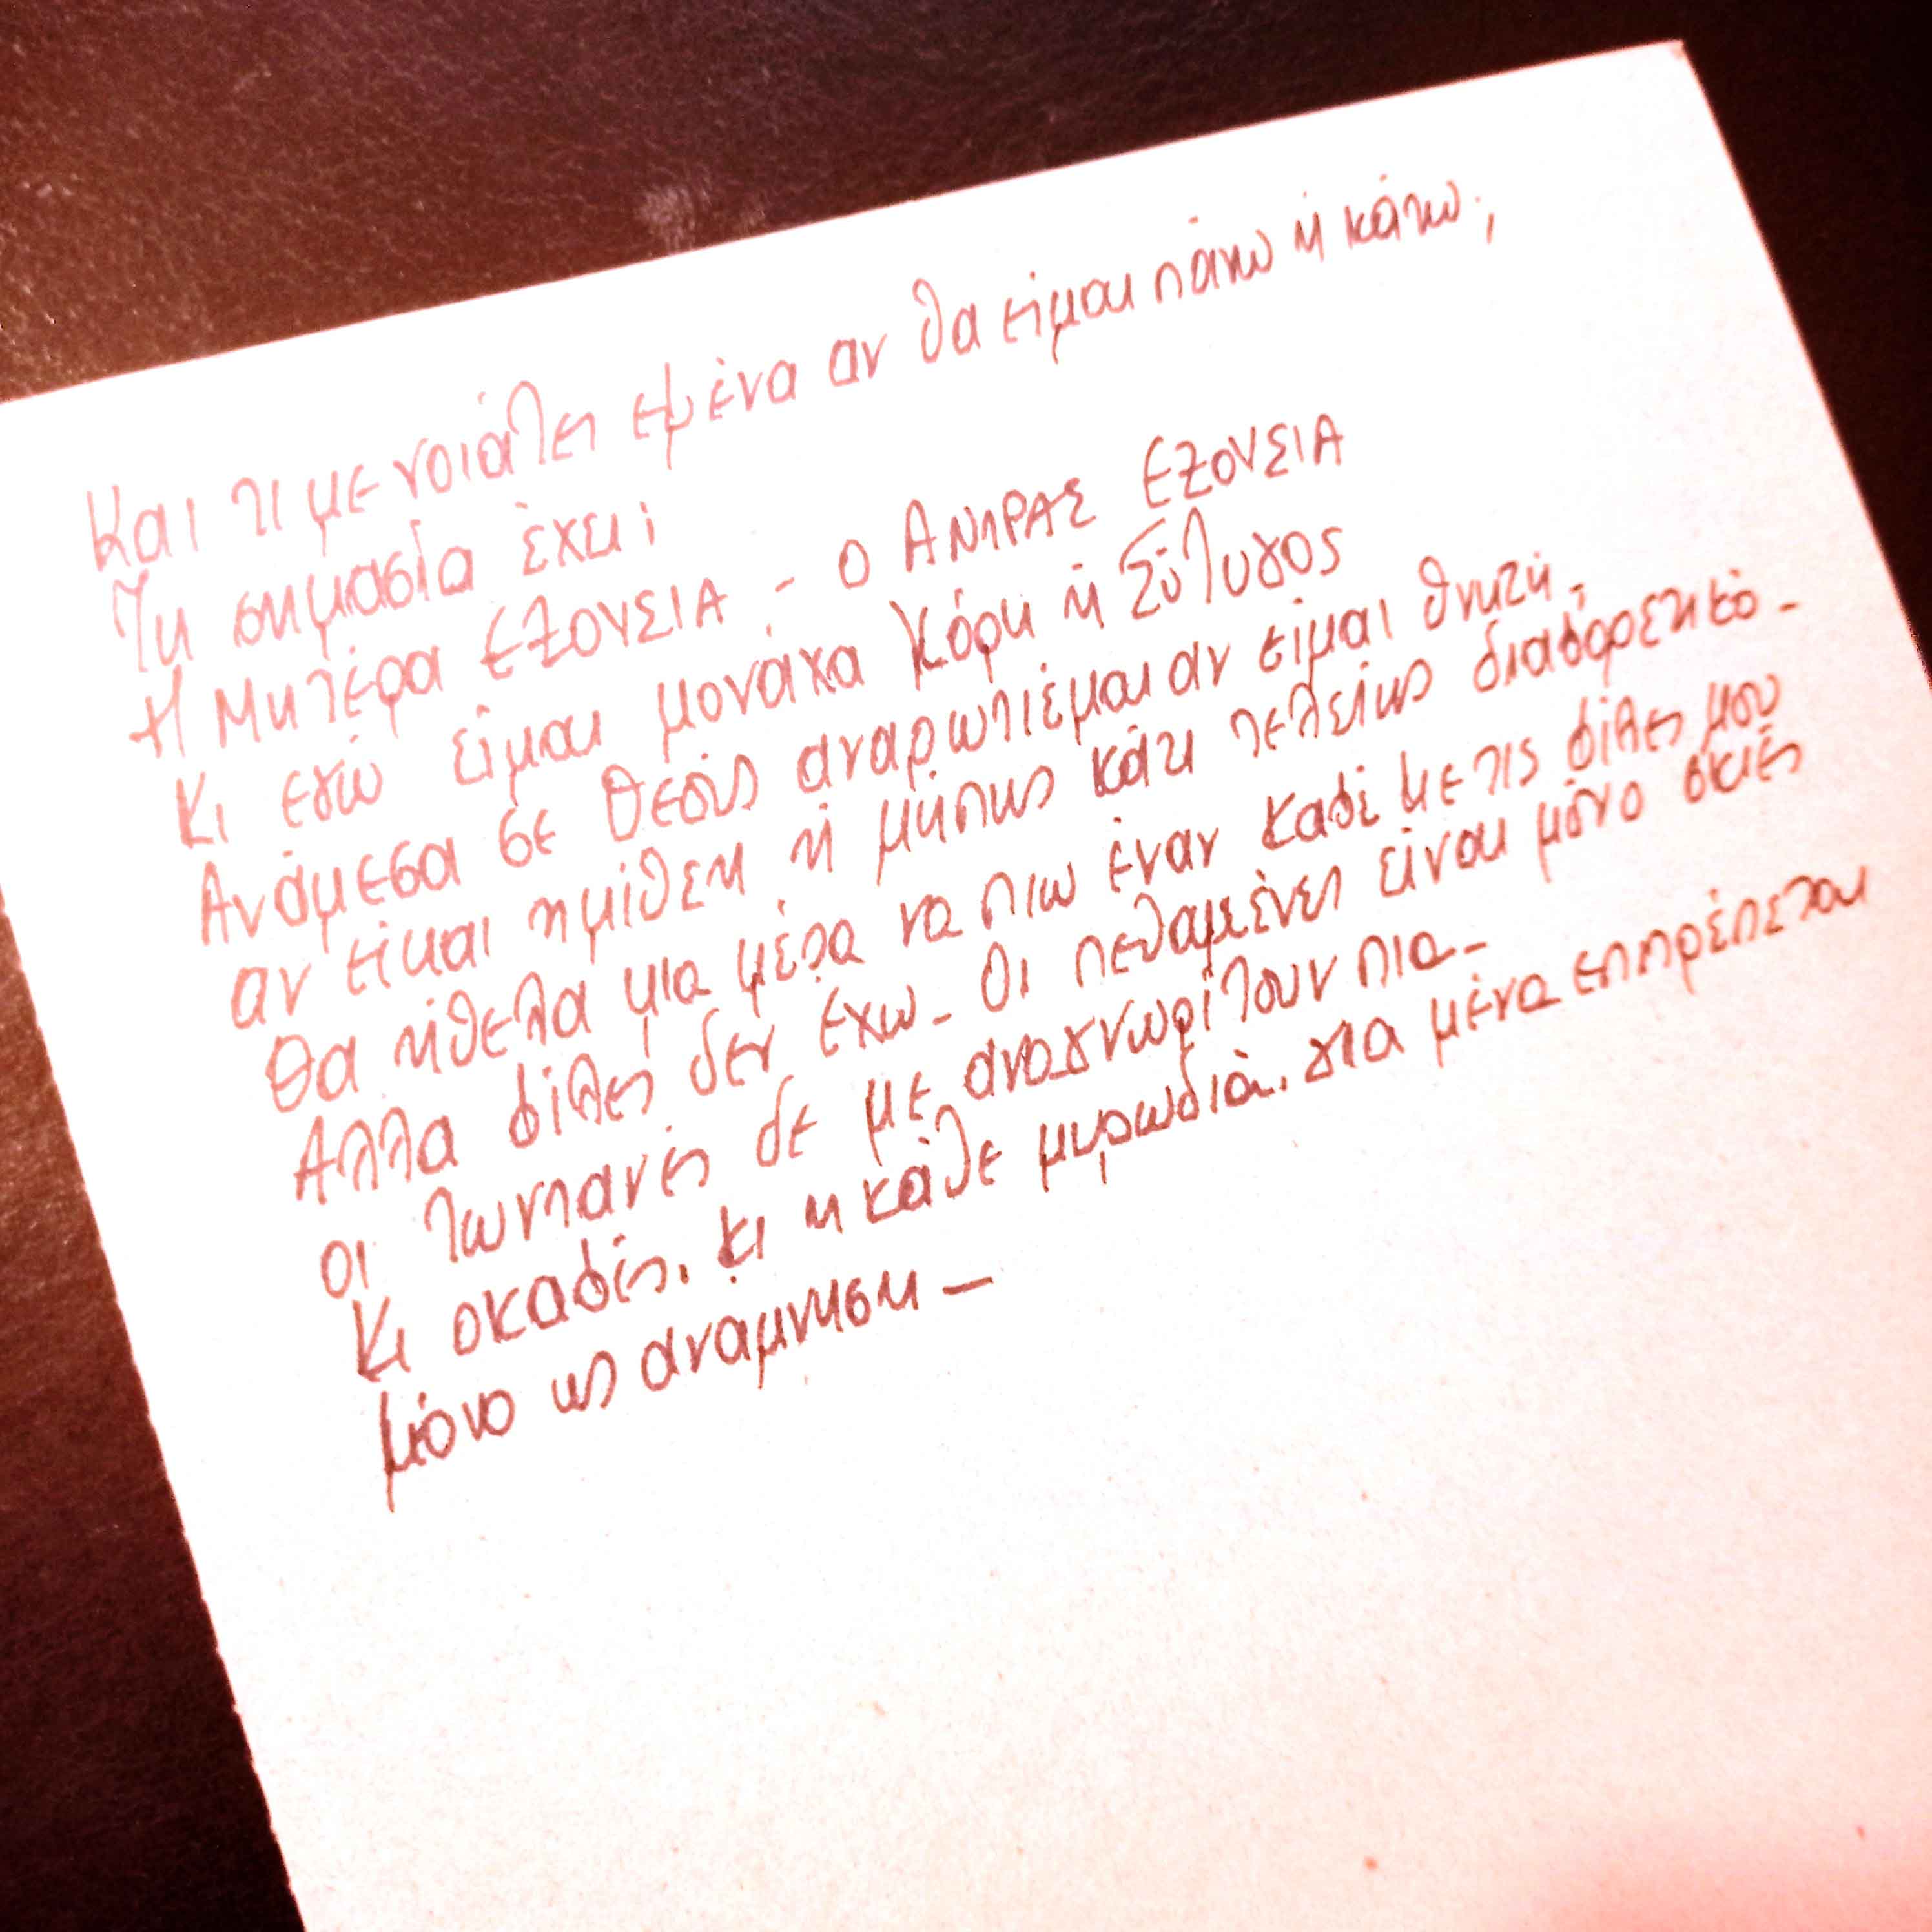 Και τι με νοιάζει εμένα αν θα είμαι πάνω ή κάτω;
Τη σημασία έχει;
Η Μητέρα ΕΞΟΥΣΙΑ - Ο ΑΝΤΡΑΣ ΕΞΟΥΣΙΑ
Κι εγώ είμαι μονάχα Κόρη ή Σύζυγος
Ανάμεσα σε θεούς αναρωτιέμαι αν είμαι θνητή,
αν είμαι ημίθεη ή μήπως κάτι τελείως διαφορετικό -
Θα ήθελα μια μέρα να πιω έναν καφέ με τις φίλες μου
Αλλα φίλες δεν έχω - Οι πεθαμένες είναι μόνο σκιές
οι ζωντανές δε με αναγνωρίζουν πια -
Κι ο καφές, κι η κάθε μυρωδιά, για μένα επιτρέπεται
μόνο ως ανάμνηση -